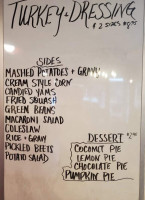 TURKEY & DRESSING
& 2 SIDES
SIDES
MASHED POTATOES + GRAVY
CREAM STYLE CORN
CANDIED YAMS
FRIED SQUASH
GREEN BEANS
MACARONI SALAD
COLESLAW
RICE + GRAVY
PICKLED BEETS
POTATO SALAD
DESSERT
COCONUT PIE
LEMON PIE
CHOCOLATE PIE
PUMPKIN PIE